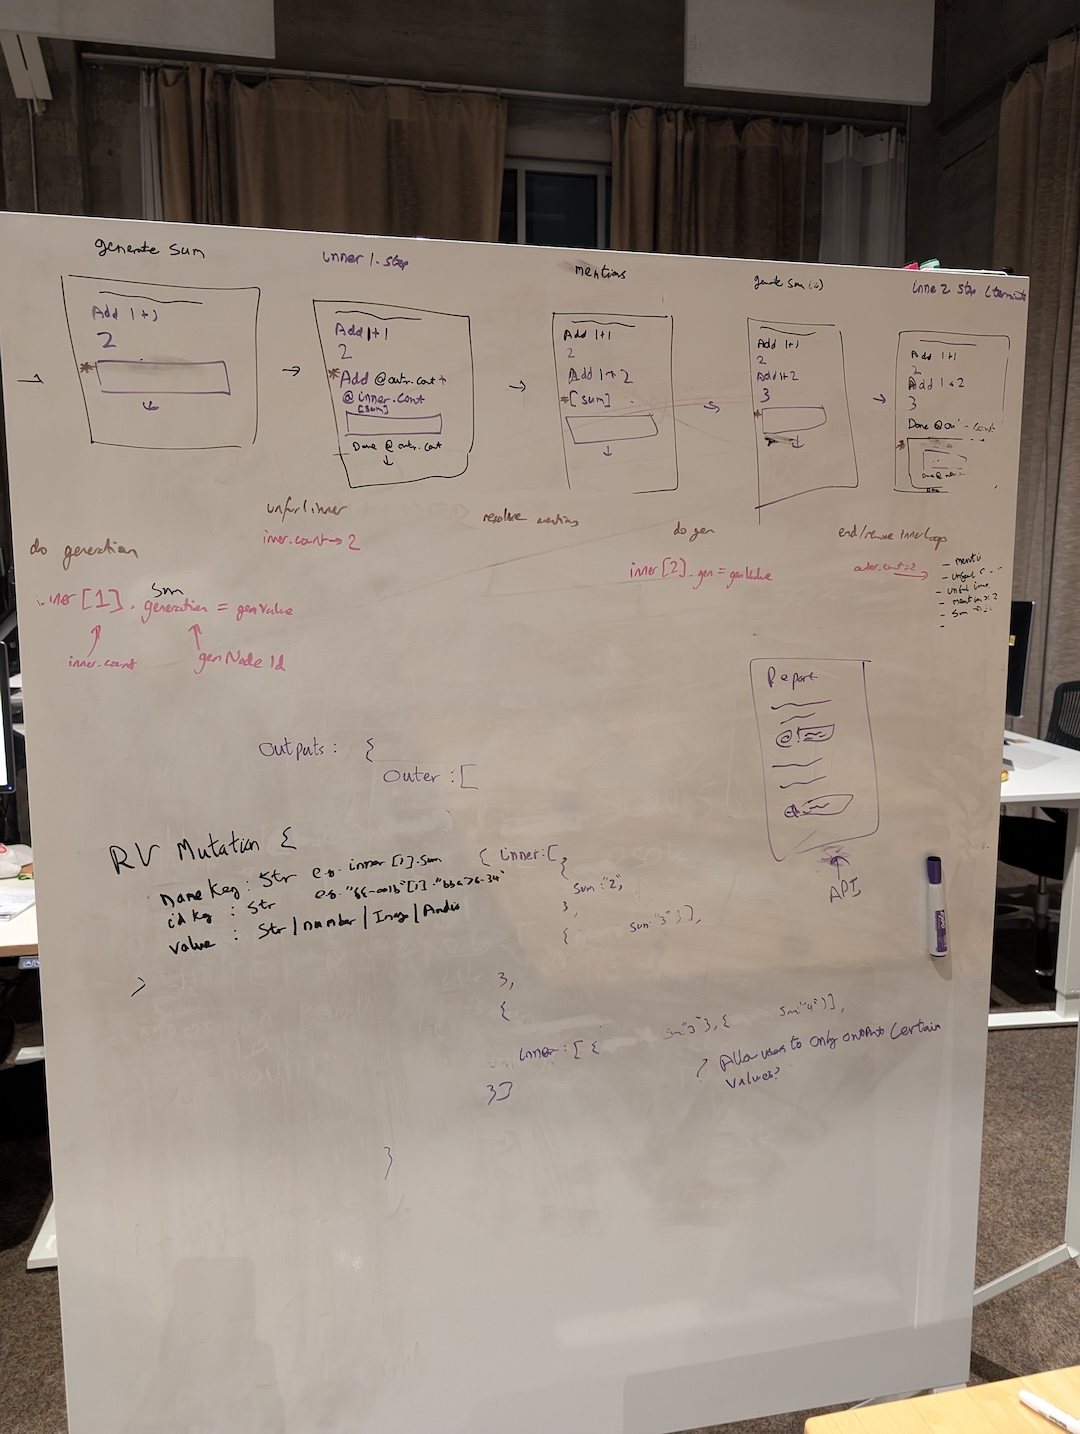 generate sum
Add 1+1
2
do generation
inner[1].generation = genValue
sum
inner.count
genNodeId
inner 1 step
Add 1+1
2
*Add @outer.count +
@inner.count
[sum]
Done @outr.cont
unfurl inner
inner.count → 2
mentions
Add 1+1
2
Add 1+2
*[sum]
resolve mentions
generate sum
Add 1+1
2
Add 1+2
3
do gen
inner[2].gen = genValue
inne 2 step (terminate
Add 1+1
2
Add 1+2
3
Done @
end/remove inner loop
outer.cont=2
Report
API
Outputs: {
Outer:[
{ inner:[
{
sum:"2",
},
{ sum:"3"}],
},
{
inner:[{ sum:"3"},{ sum:"4"}],
}]
}
? Allow users to only output certain
values?
RV Mutation {
name key: Str e.g. inner[1].sum
id key: Str
value: Str|number|Image|Audio
}